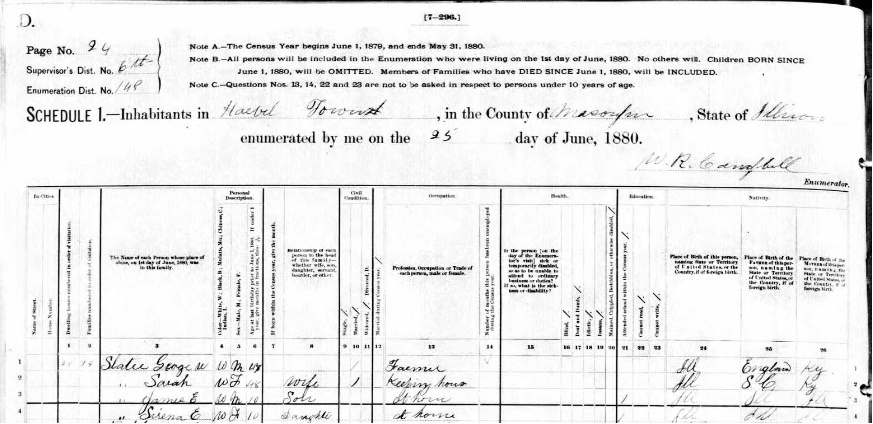 D.
[7-296.]
Page No. 24
Supervisor's Dist. No. 6th
Enumeration Dist. No. 148
Note A.—The Census Year begins June 1, 1879, and ends May 31, 1880.
Note B.—All persons will be included in the Enumeration who were living on the 1st day of June, 1880. No others will. Children BORN SINCE
June 1, 1880, will be OMITTED. Members of Families who have DIED SINCE June 1, 1880, will be INCLUDED.
Note C.—Questions Nos. 13, 14, 22 and 23 are not to be asked in respect to persons under 10 years of age.
SCHEDULE 1.—Inhabitants in , in the County of , State of
enumerated by me on the 25 day of June, 1880.
W. R. Campbell
Enumerator.
In Cities
Name of Street.
House Number.
Dwelling houses numbered in order of visitation.
Families numbered in order of visitation.
The Name of each Person whose place of abode, on 1st day of June, 1880, was in this family.
Personal Description.
Relationship of each person to the head of this family—whether wife, son, daughter, servant, boarder, or other.
Civil Condition.
Single, /
Married, /
Widowed, / Divorced, D.
Married during Census year, /
Occupation.
Profession, Occupation or Trade of each person, male or female.
Number of months this person has been unemployed during the Census year.
Health.
Is the person [on the day of the Enumerator's visit] sick or temporarily disabled, so as to be unable to attend to ordinary business or duties? If so, what is the sickness or disability?
Blind, /
Deaf and Dumb, /
Idiotic, /
Insane, /
Maimed, Crippled, Bedridden, or otherwise disabled, /
Education.
Attended school within the Census year, /
Cannot read, /
Cannot write, /
Nativity.
Place of Birth of this person, naming State or Territory of United States, or the Country, if of foreign birth.
Place of Birth of the FATHER of this person, naming the State or Territory of United States, or the Country, if of foreign birth.
1 2 3 4 5 6 7 8 9 10 11 12 13 14 15 16 17 18 19 20 21 22 23 24 25 26
1 George W W M 48 / Farmer Ill England Ky 1
2 " Sarah W F 48 Wife / Keeping hous Ill S C Ky 2
3 " James E W M Son / Ill 3
4 " Sirena E W F 10 Daughte At home / Ill 4